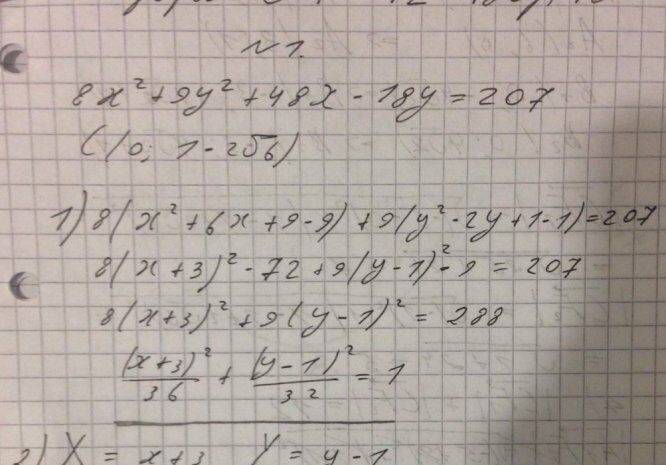 N1.
8x² + 9y² + 48x - 18y = 207
(10; 1 - 2√6)
1) 8(x² + 6x + 9 - 9) + 9(y² - 2y + 1 - 1) = 207
8(x + 3)² - 72 + 9(y - 1)² - 9 = 207
8(x + 3)² + 9(y - 1)² = 288
(x + 3)²/36 + (y - 1)²/32 = 1
2) X = x + 3 Y = y - 1